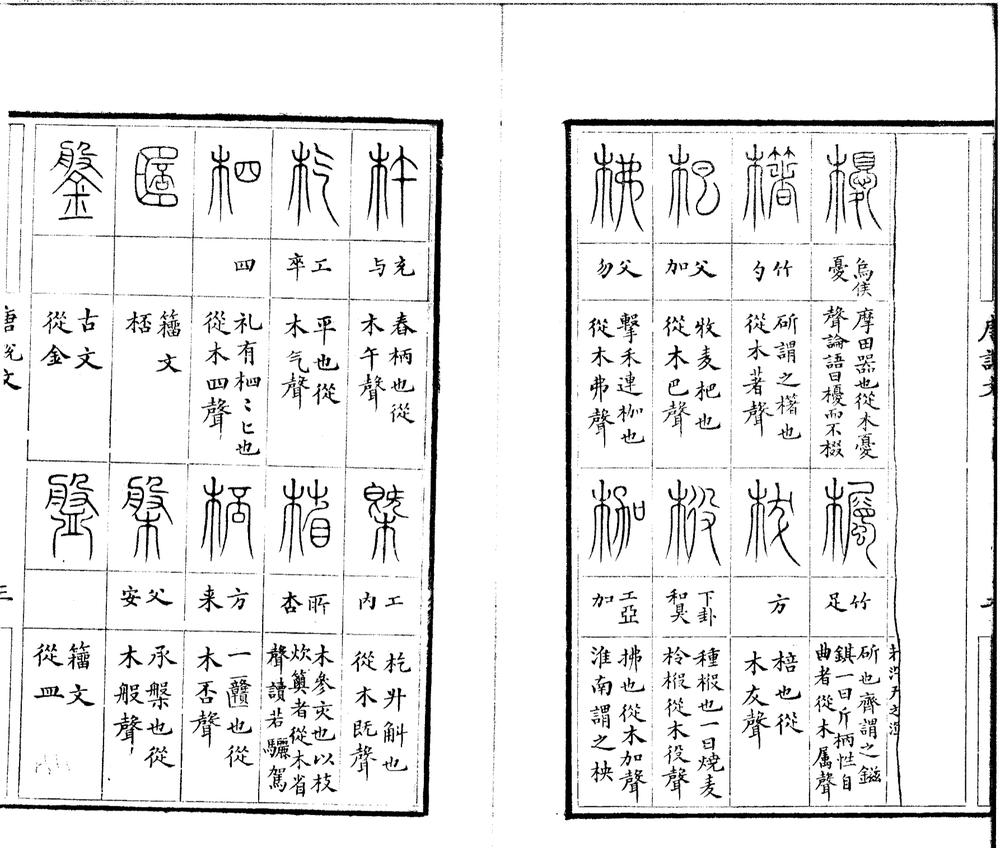 櫌
烏侯
憂
摩田器也從木憂
聲論語曰櫌而不棳
櫡
竹
勺
斫謂之櫡也
從木著聲
杷
父
加
收麦杷也
從木巴聲
柫
父
勿
擊禾連枷也
從木弗聲
欘
竹
足
斫也齊謂之鎡
錤一曰斤柄性自
曲者從木属聲
柭
方
棓也從
木犮聲
𣔻
下卦
和臭
種𣔻也一曰燒麦
柃𣔻從木役聲
枷
工亞
加
拂也從木加聲
淮南謂之柍
杵
充
与
舂柄也從
木午聲
杚
工
卒
平也從
木气聲
柶
四
礼有柶〻匕也
從木四聲
籀文
桮
鎜
古文
從金
槩
工
内
杚廾斛也
從木既聲
㮐
所
杏
木參交也以枝
炊䉛者從木省
聲讀若驪駕
桮
方
来
一䉶也從
木否聲
槃
父
安
承槃也從
木般聲
盤
籀文
從皿
唐說文
三